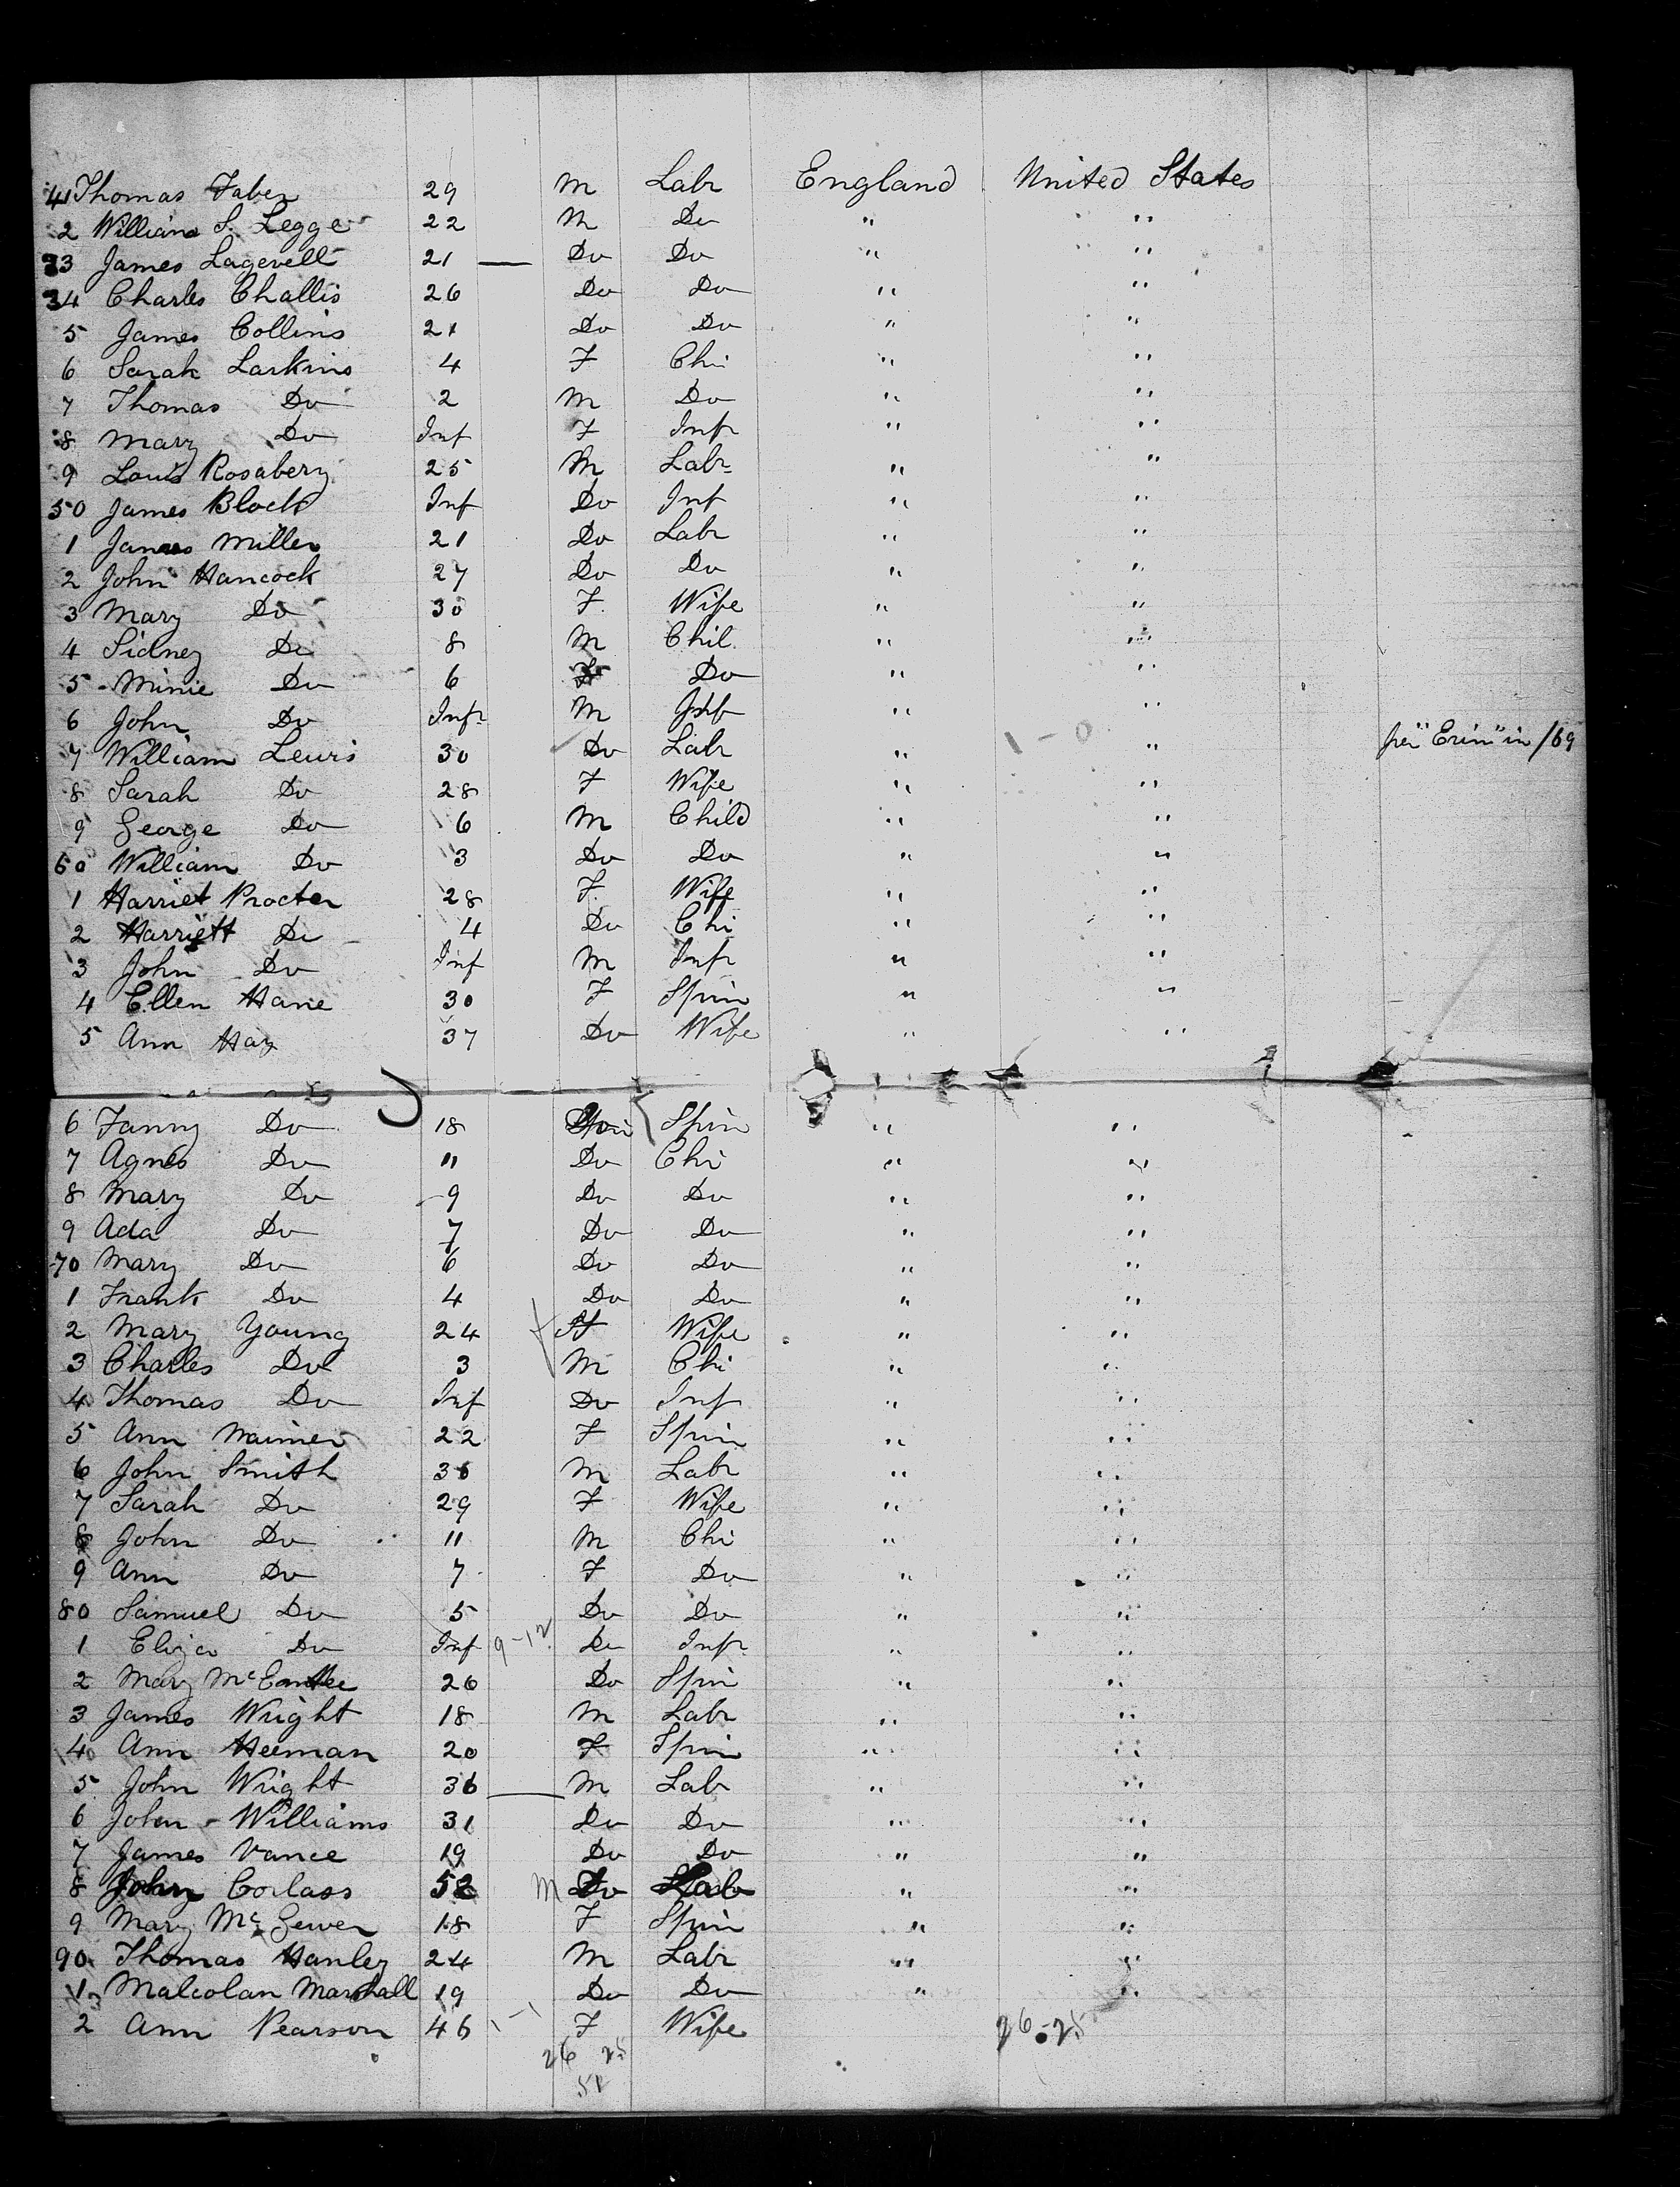 41 Thomas Faber 29 M Labr England United States
2 William S. Legge 22 M Do " "
33 James Lagevell 21 — Do Do " "
34 Charles Challis 26 Do Do " "
5 James Collins 21 Do Do " "
6 Sarah Larkins 4 F Chi " "
7 Thomas Do 2 M Do " "
8 Mary Do Inf F Infr " "
9 Louis Rosabery 25 M Labr " "
50 James Block Inf Do Inf " "
1 James Miller 21 Do Labr " "
2 John Hancock 27 Do Do " "
3 Mary Do 30 F. Wife " "
4 Sidney Do 8 M Chil. " "
5 Minie Do 6 F Do " "
6 John Do Infr M Inf " "
7 William Lewis 30 Do Labr " 1 - 0 " per "Erin" in /69
8 Sarah Do 28 F Wife " "
9 George Do 6 M Child " "
60 William Do 3 Do Do " "
1 Harriet Procter 28 F. Wife " "
2 Harriett Do 4 Do Chi " "
3 John Do Inf M Infr " "
4 Ellen Hane 30 F Spin " "
5 Ann Hay 37 Do Wife " "
6 Fanny Do 18 Spin " "
7 Agnes Do 11 Do Chi " "
8 Mary Do 9 Do Do " "
9 Ada Do 7 Do Do " "
70 Mary Do 6 Do Do " "
1 Frank Do 4 Do Do " "
2 Mary Young 24 F Wife " "
3 Charles Do 3 M Chi " "
4 Thomas Do Inf Do Inf " "
5 Ann 22 F Spin " "
6 John Smith 30 M Labr " "
7 Sarah Do 29 F Wife " "
8 John Do 11 M Chi " "
9 Ann Do 7 F Do " "
80 Samuel Do 5 Do Do " "
1 Eliza Do Inf 9-12 Do Infr " "
2 Mary McEntee 26 Do Spin " "
3 James Wright 18 M Labr " "
4 Ann Heeman 20 F Spin " "
5 John Wright 36 — M Lab " "
6 John Williams 31 Do Do " "
7 James Vance 19 Do Do " "
8 John Corlass 52 M Do Lab " "
9 Mary McGewen 18 F Spin " "
90 Thomas Hanley 24 M Labr " "
1 Malcolan Marshall 19 Do Do " "
2 Ann Pearson 46 1-1 F Wife 26-25
26 25
51